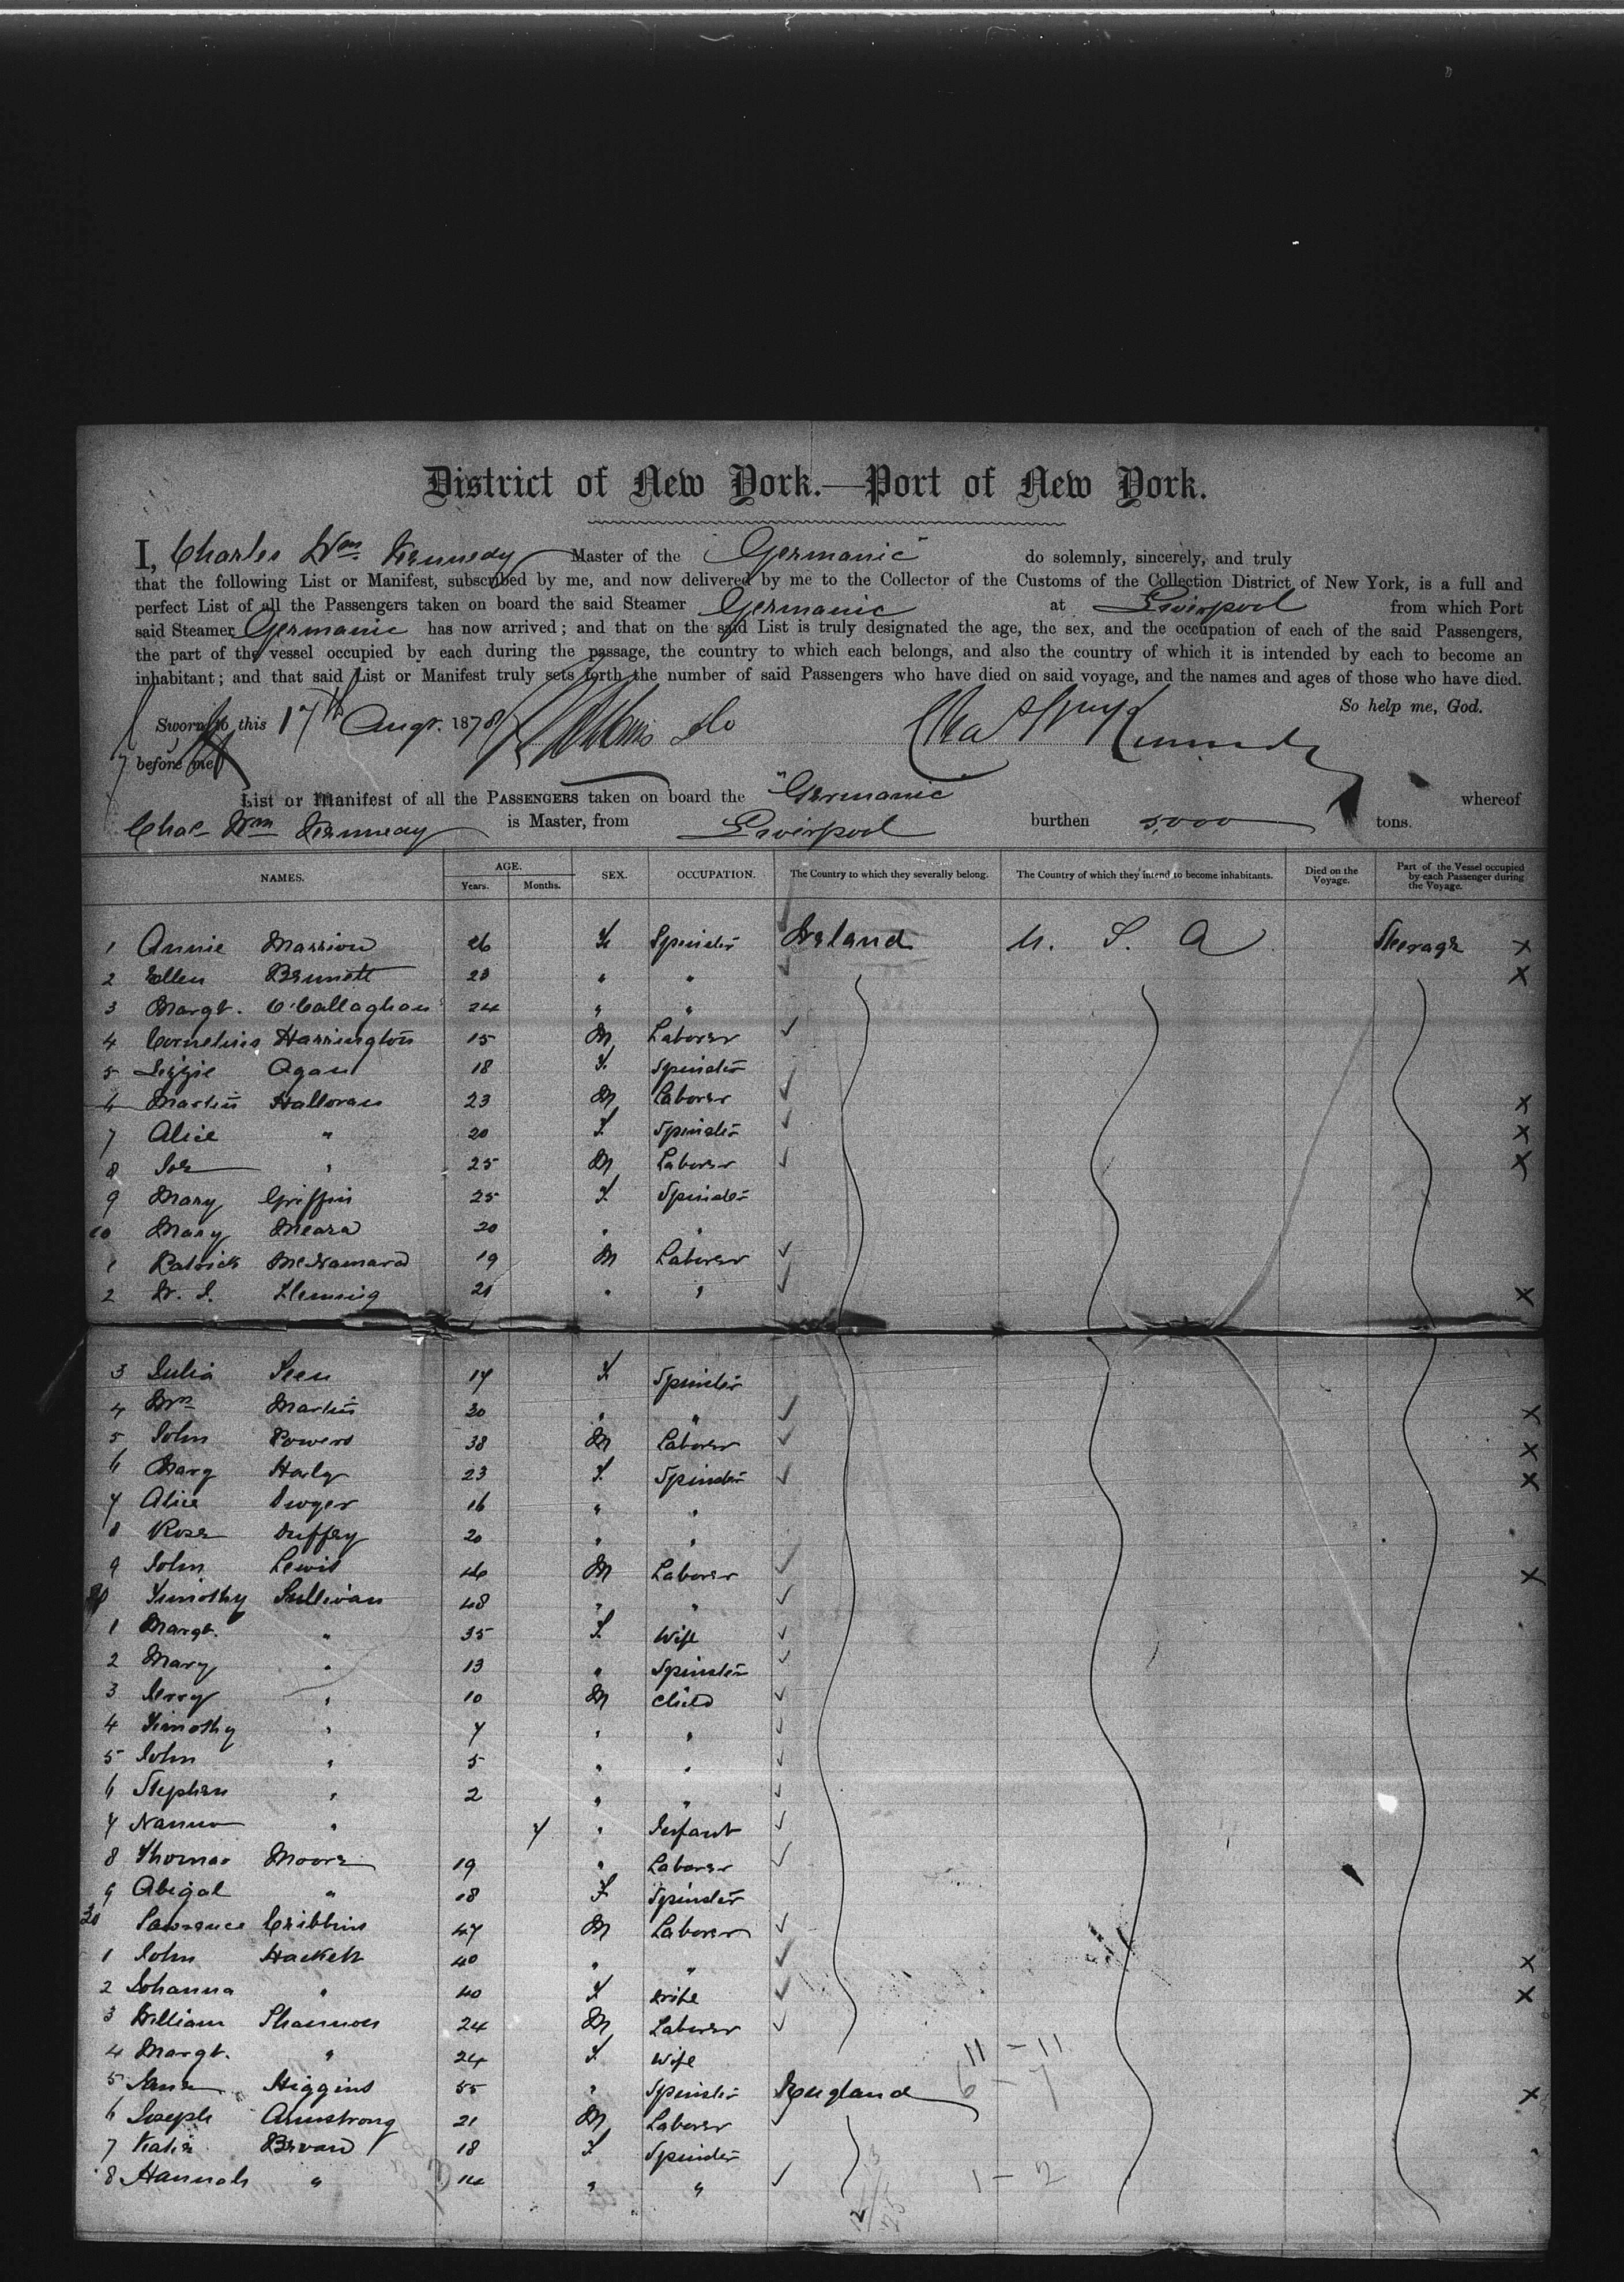 District of New York.—Port of New York.
I, Charles Wm Kennedy Master of the "Germanic" do solemnly, sincerely, and truly
that the following List or Manifest, subscribed by me, and now delivered by me to the Collector of the Customs of the Collection District of New York, is a full and
perfect List of all the Passengers taken on board the said Steamer Germanic at Liverpool from which Port
said Steamer Germanic has now arrived; and that on the said List is truly designated the age, the sex, and the occupation of each of the said Passengers,
the part of the vessel occupied by each during the passage, the country to which each belongs, and also the country of which it is intended by each to become an
inhabitant; and that said List or Manifest truly sets forth the number of said Passengers who have died on said voyage, and the names and ages of those who have died.
So help me, God.
Sworn to this 17th Augt. 1878
before me
List or Manifest of all the PASSENGERS taken on board the "Germanic" whereof
Chas Wm Kennedy is Master, from Liverpool burthen 5,000 tons.
NAMES. AGE. Years. Months. SEX. OCCUPATION. The Country to which they severally belong. The Country of which they intend to become inhabitants. Died on the Voyage. Part of the Vessel occupied by each Passenger during the Voyage.
1 Annie 26 F Spinster Ireland U. S. A Steerage X
2 Ellen Bennett 23 " " X
3 Margt. O'Callaghan 24 " "
4 Cornelius Harrington 15 M Laborer
5 Lizzie Agan 18 F. Spinster
6 Martin Halloran 23 M Laborer X
7 Alice " 20 F. Spinster X
8 Joe " 25 M Laborer X
9 Mary Griffin 25 F. Spinster
10 Mary Meara 20 " "
1 Patrick McNamara 19 M Laborer
2 Fleming 21 " " X
3 Julia 17 F Spinster
4 Martin 30 " " X
5 John Powers 38 M Laborer X
6 Mary 23 F. Spinster X
7 Alice Dwyer 16 " "
8 Rose Duffey 20 " "
9 John Lewis M Laborer X
20 Timothy Sullivan 48 " "
1 Margt. " 35 F. Wife
2 Mary " 13 " Spinster
3 Jerry " 10 M Child
4 Timothy " 7 " "
5 John " 5 " "
6 Stephen " 2 " "
7 " 7 " Infant
8 Thomas Moore 19 " Laborer
9 Abigal " 18 F Spinster
30 Lawrence Cribbins 47 M Laborer
1 John Hackett 40 " " X
2 Johanna " 40 F Wife X
3 William Shannon 24 M Laborer
4 Margt. " 24 F. Wife 11 - 11
5 Jane Higgins 55 " Spinster England 6 - 7 X
6 Joseph Armstrong 21 M Laborer
7 Katie 18 F. Spinster
8 Hannah " 14 " " 1 - 2